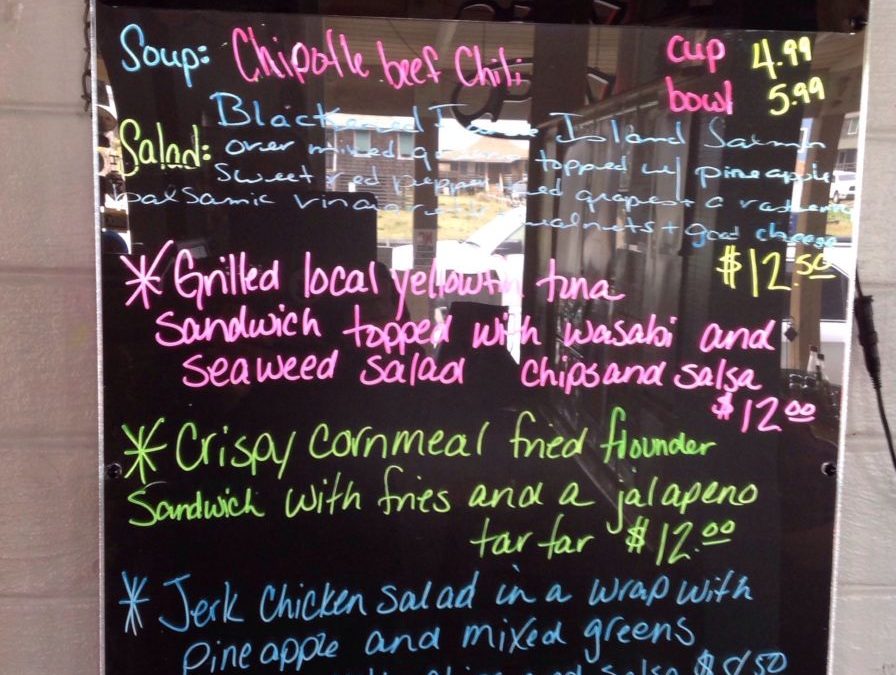 Soup: Chipotle beef Chili cup 4.99
bowl 5.99
Salad: Blackened Faroe Island Salmon
over mixed greens topped w/ pineapple
sweet red pepper red grapes + a raspberry
balsamic vinaigrette walnuts + goat cheese
$12.50
* Grilled local yellowfin tuna
Sandwich topped with wasabi and
seaweed salad chips and salsa
$12.00
* Crispy cornmeal fried flounder
Sandwich with fries and a jalapeno
tar tar $12.00
* Jerk chicken salad in a wrap with
pineapple and mixed greens
salsa